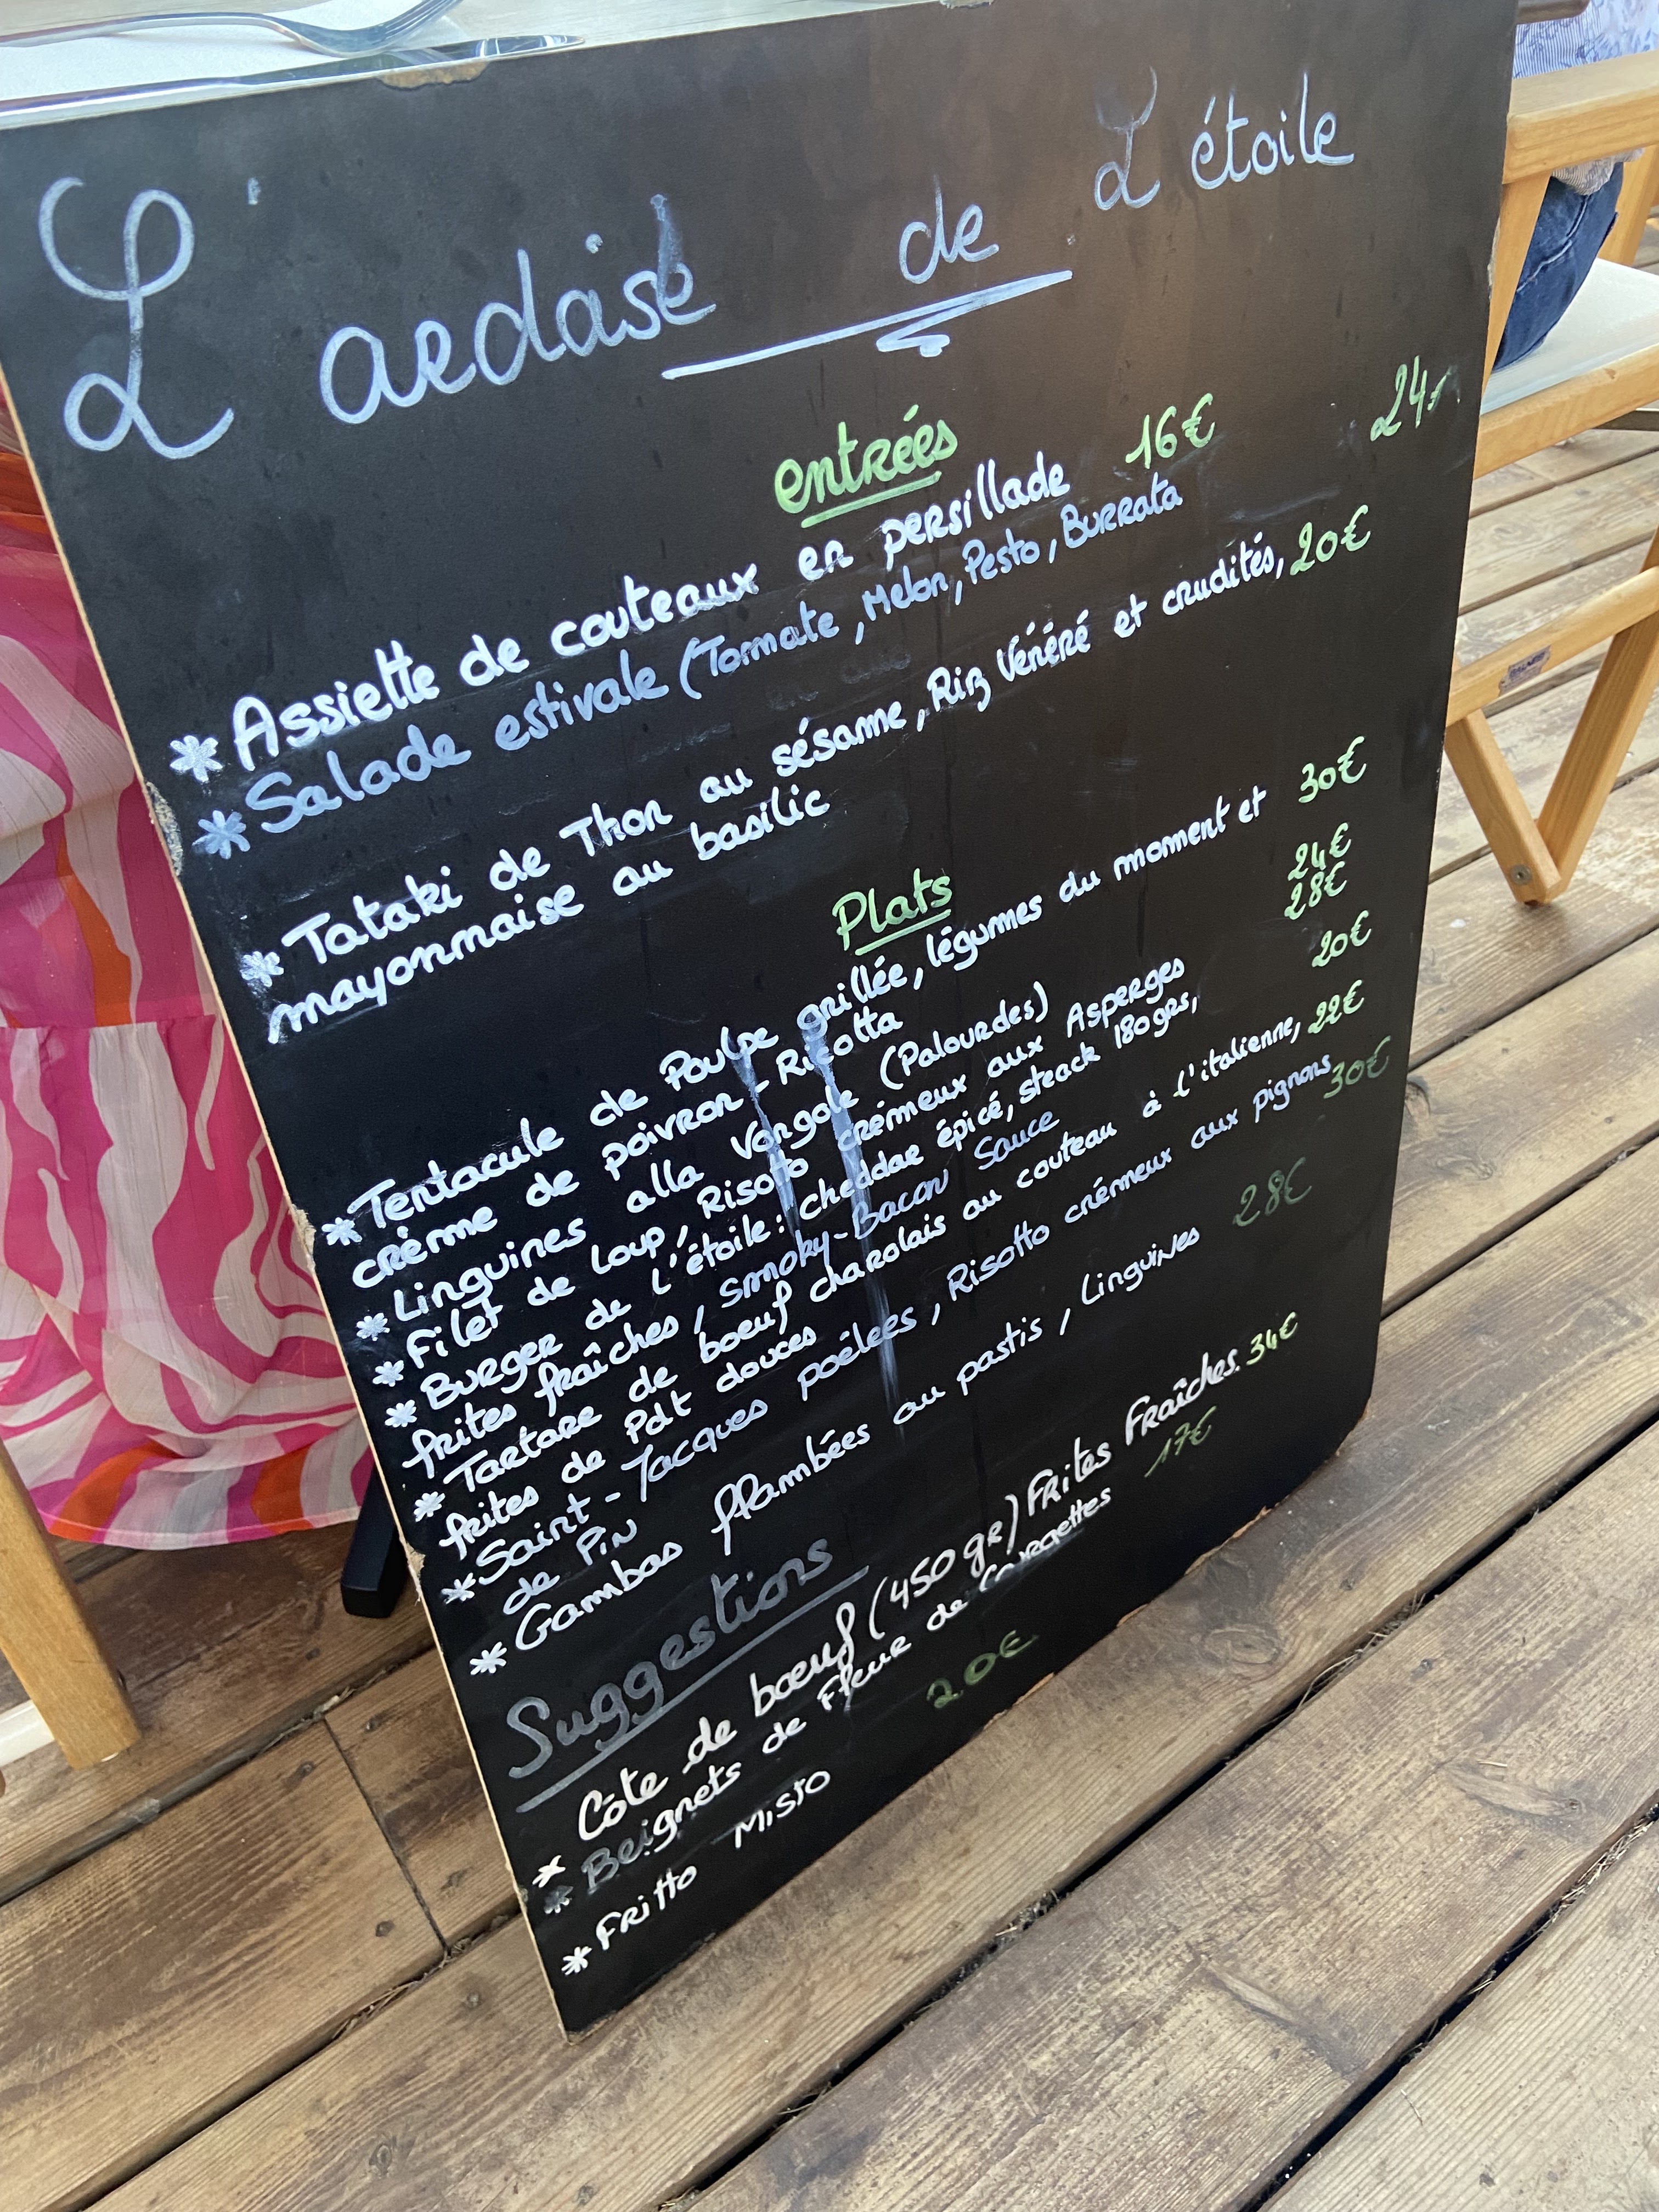 L'ardaise de L'étoile
entrées
* Assiette de couteaux en persillade 16€
* Salade estivale (Tomate, Melon, Pesto, Burrata 24
* Tataki de Thon au sésame, Riz Vénéré et crudités, 20€
mayonnaise au basilic
Plats
* Tentacule de Poulpe grillée, légumes du moment et 30€
crème de poivron - Ricotta
* Linguines alla Vongole (Palourdes) 24€
* Filet de loup, Risotto crémeux aux Asperges 28€
* Burger de L'étoile: cheddar épicé, steack 180grs, 20€
frites fraîches, smoky-Bacon Sauce
* Tartare de boeuf charolais au couteau à l'italienne, 22€
frites de Pdt douces
* Saint-Jacques poêlees, Risotto crémeux aux pignons 30€
de Pin
* Gambas flambées au pastis, Linguines 28€
Suggestions
* Côte de bœuf (450 gr) Frites Fraîches. 34€
* Beignets de Fleur de Courgettes 17€
* Fritto Misto 20€